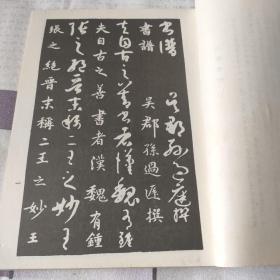 書譜 吳郡孫過庭撰
書譜 吳郡孫過庭撰
夫自古之善書者漢魏有鍾
夫自古之善書者漢魏有鍾
張之絕晉末稱二王之妙王
張之絕晉末稱二王之妙王